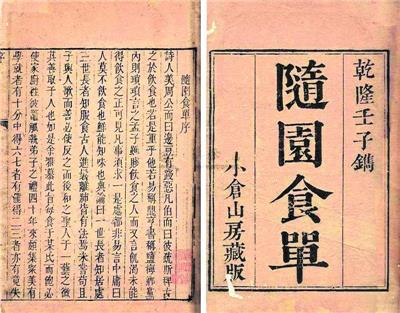 乾隆壬子鐫
隨園食單
小倉山房藏版
隨園食單序
詩人美周公而曰籩豆有踐惡凡伯而曰彼疏斯稗古
之於飲食也若是重乎他若易稱鼎亨書稱鹽梅鄉黨
內則瑣瑣言之孟子雖賤飲食之人而又言飢渴未能
得飲食之正可見凡事須求一是處都非易言中庸曰
人莫不飲食也鮮能知味也典論曰一世長者知居處
三世長者知服食古人進鬐離肺皆有法焉未嘗苟且
子與人歌而善必使反之而後和之聖人於一藝之微
其善取於人也如是余雅慕此旨每食于某氏而飽必
使家廚往彼竈觚執弟子之禮四十年來頗集衆美有
學就者有十分中得六七者有僅得二三者亦有竟失
序